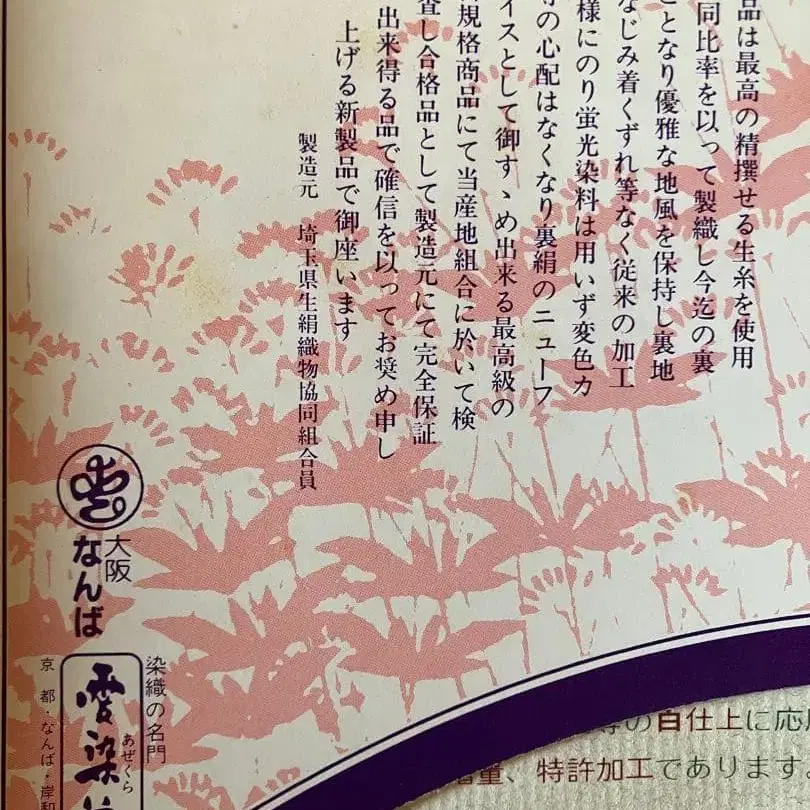 品は最高の精撰せる生糸を使用
同比率を以って製織し今迄の裏
となり優雅な地風を保持し裏地
なじみ着くずれ等なく従来の加工
様にのり蛍光染料は用いず変色カ
の心配はなくなり裏絹のニューフ
イスとして御すゝめ出来る最高級の
規格商品にて当産地組合に於いて検
査し合格品として製造元にて完全保証
出来得る品で確信を以ってお奨め申し
上げる新製品で御座います
製造元 埼玉県生絹織物協同組合員
大阪
なんば
染織の名門
あぜくら
染
京都・なんば・岸和
の自仕上に応
量、特許加工であります。